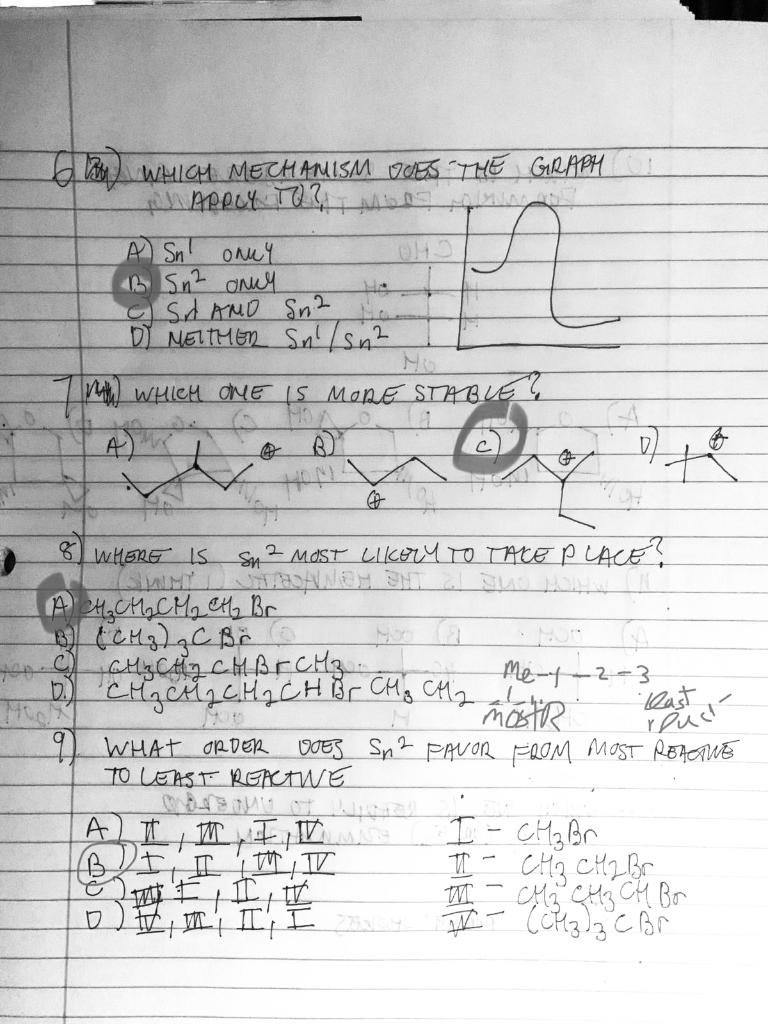 6) WHICH MECHANISM DOES THE GRAPH
APPLY TO?
A) Sn1 ONLY
B) Sn2 ONLY
C) Sn1 AND Sn2
D) NEITHER Sn1/Sn2
7) WHICH ONE IS MORE STABLE?
A) ⊕ B) ⊕ C) ⊕ D) ⊕
8) WHERE IS Sn2 MOST LIKELY TO TAKE PLACE?
A) CH3CH2CH2CH2Br
B) (CH3)3CBr
C) CH3CH2CHBrCH3
D.) CH3CH2CH2CHBrCH3CH2
Me-1-2-3
most R
least
9) WHAT ORDER DOES Sn2 FAVOR FROM MOST REACTIVE
TO LEAST REACTIVE
A) II, III, I, IV I - CH3Br
B) I, II, III, IV II - CH3CH2Br
C) III, I, II, IV III - CH3CH3CHBr
D) IV, III, II, I IV - (CH3)3CBr